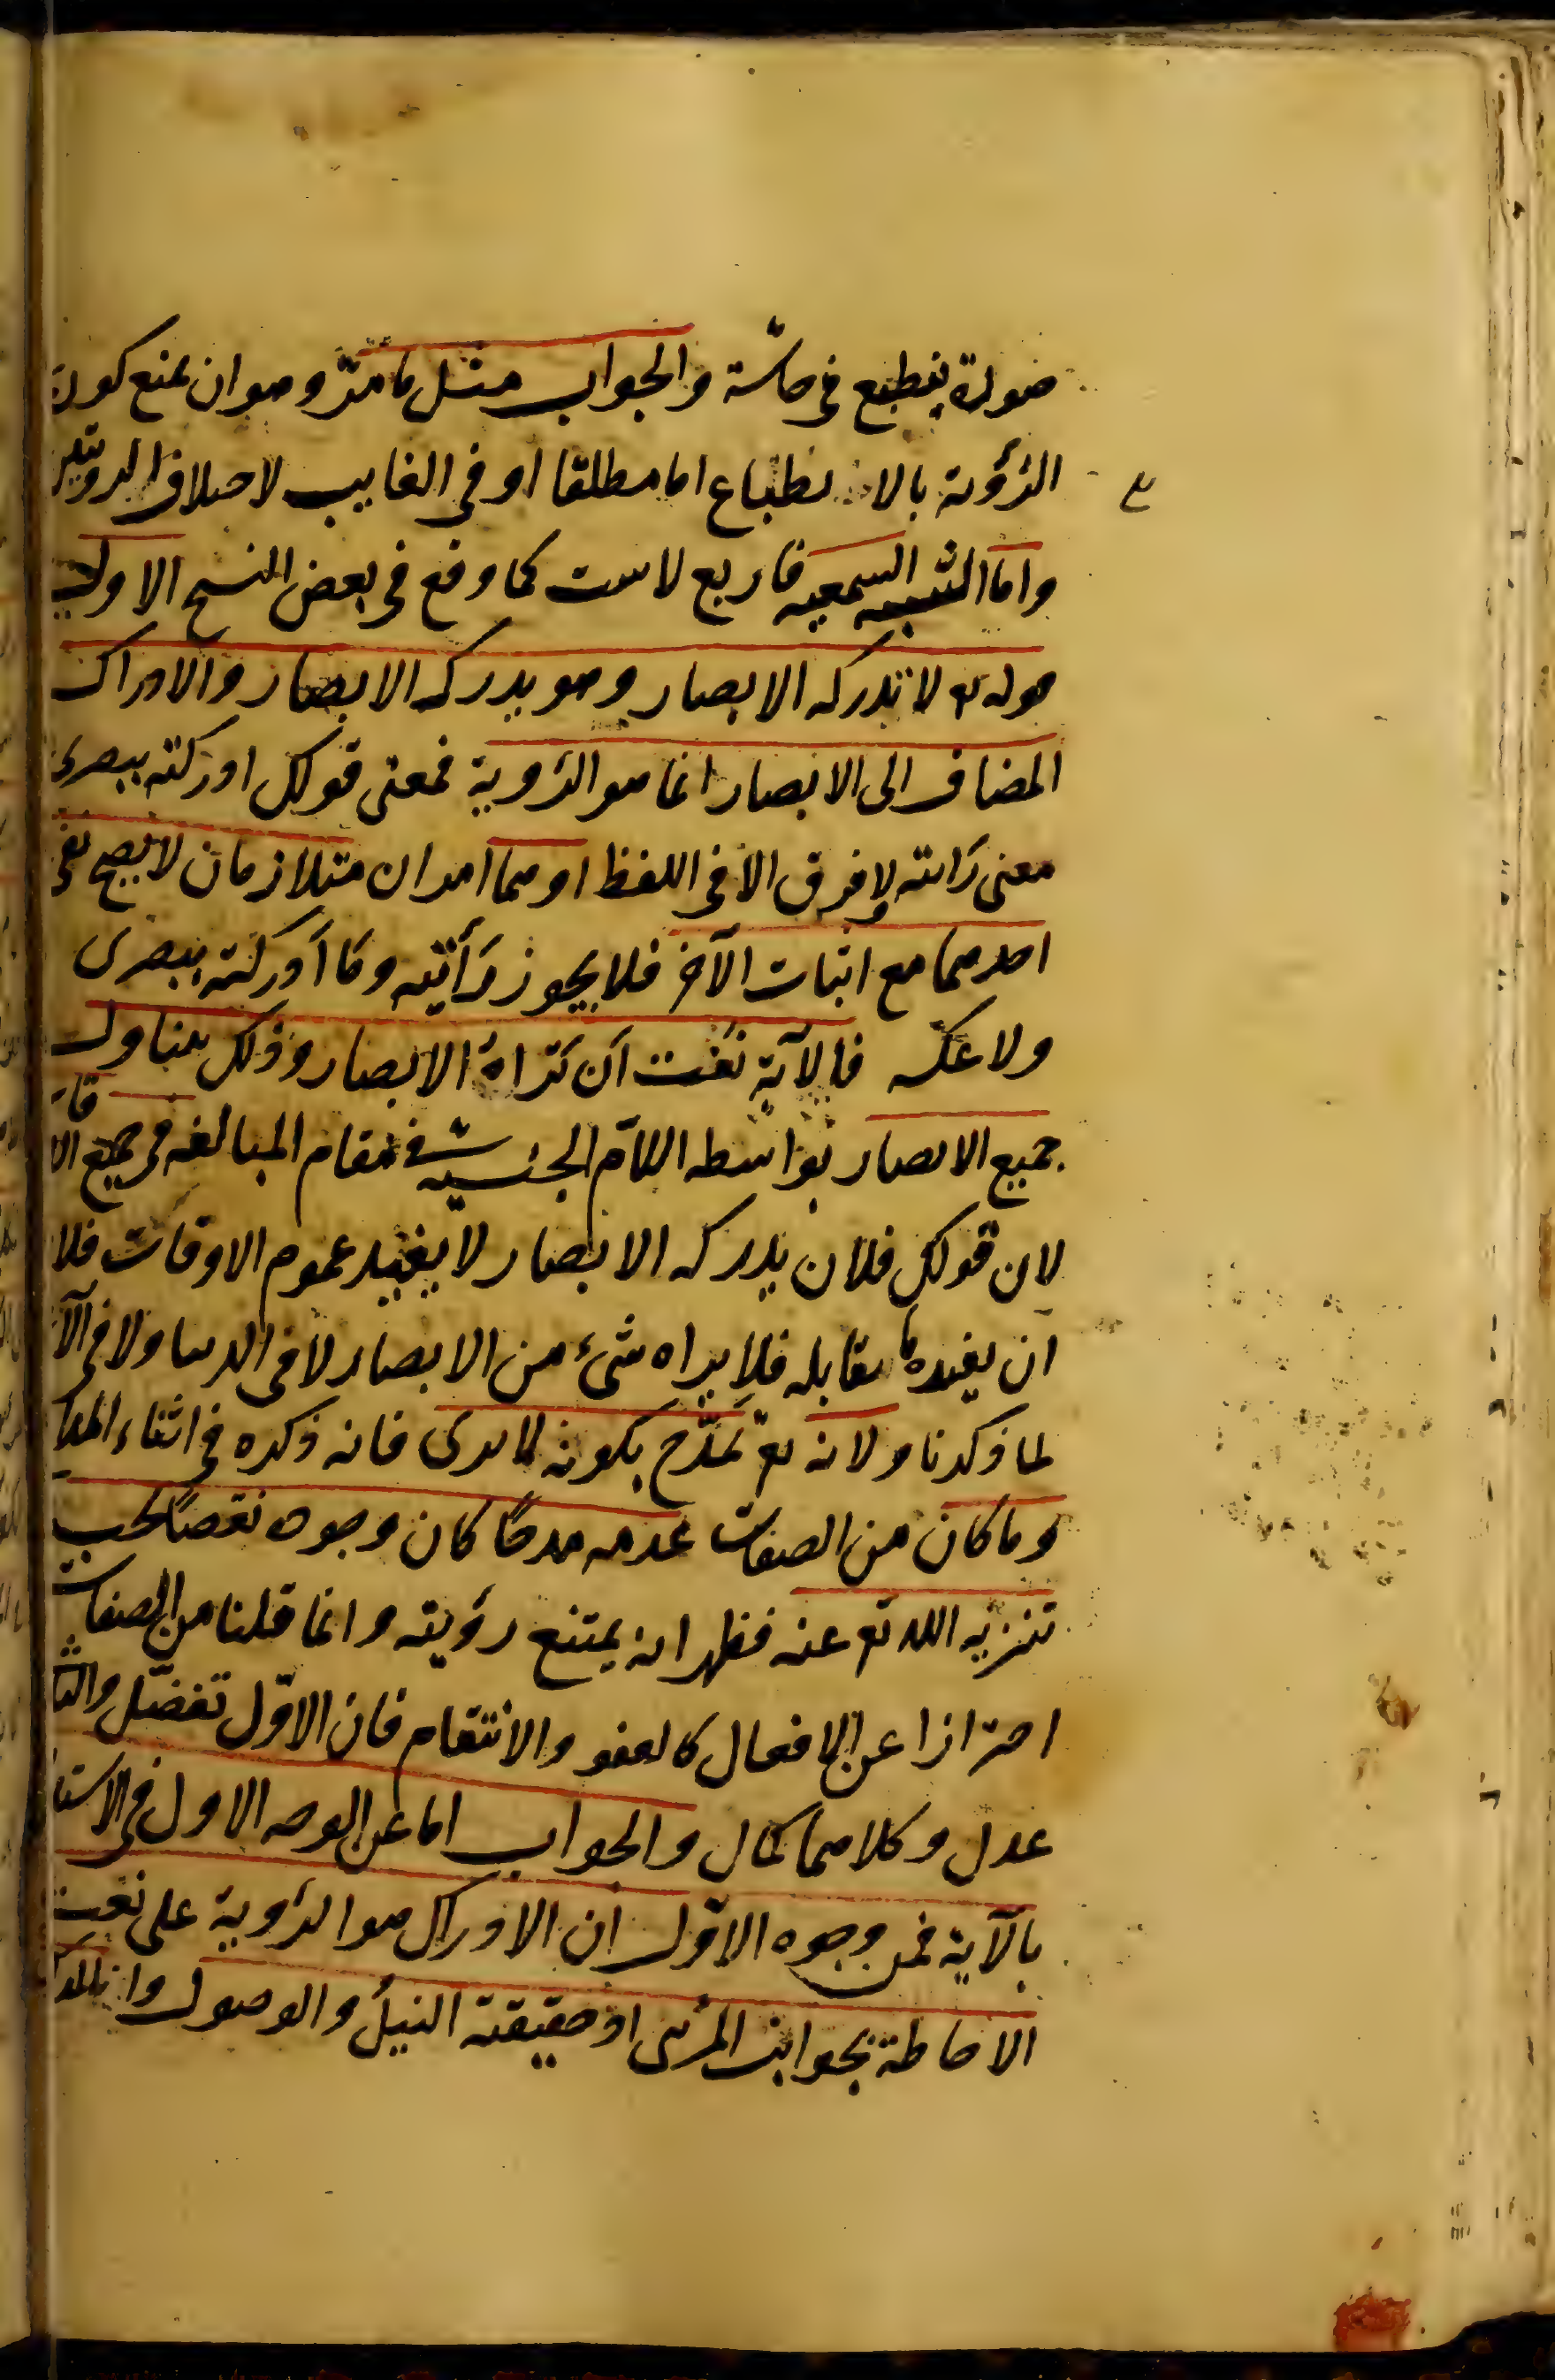 صورة ينطبع في حاسة والجواب مثل ما مرّ وهو ان نمنع كون
الرؤية بالانطباع اما مطلقا او في الغايب لاختلاف الرؤيتين
واما الشبه السمعيه فاربع لاست كما وقع في بعض النسخ الاولى
قوله تع لا تدركه الابصار وهو يدرك الابصار والادراك
المضاف الى الابصار انما هو الرؤية فمعنى قولك ادركته ببصرى
معنى رأيته ولا فرق الا في اللفظ او هما امران متلازمان لا يصح نفى
احدهما مع اثبات الآخر فلا يجوز رأيته وما أدركته ببصرى
ولا عكسه فالآية نفت أن تراهُ الابصار وذلك يتناول
جميع الابصار بواسطه اللام الجنسيه في مقام المبالغه في جميع الاوقات
لان قولك فلان يدركه الابصار لا يفيد عموم الاوقات فلا
ان يفيده ما يقابله فلا يراه شيء من الابصار لا في الدنيا ولا في الآ
لما ذكرنا ولانه تع تمدّح بكونه لا يرى فانه ذكره في اثناء المدا
وما كان من الصفات عدمه مدحًا كان وجوده نقصًا يجب
تنزيه الله تع عنه فظهر انه يمتنع رؤيته وانما قلنا من الصفات
احترازا عن الافعال كالعفو والانتقام فان الاوّل تفضّل والثا
عدل وكلاهما كمال والجواب اما عن الوجه الاول في الاستد
بالآية فمن وجوه الاوّل ان الادراك هو الرؤية على نعت
الاحاطة بجوانب المرئى اذ حقيقته النيلُ والوصول وانا لمد